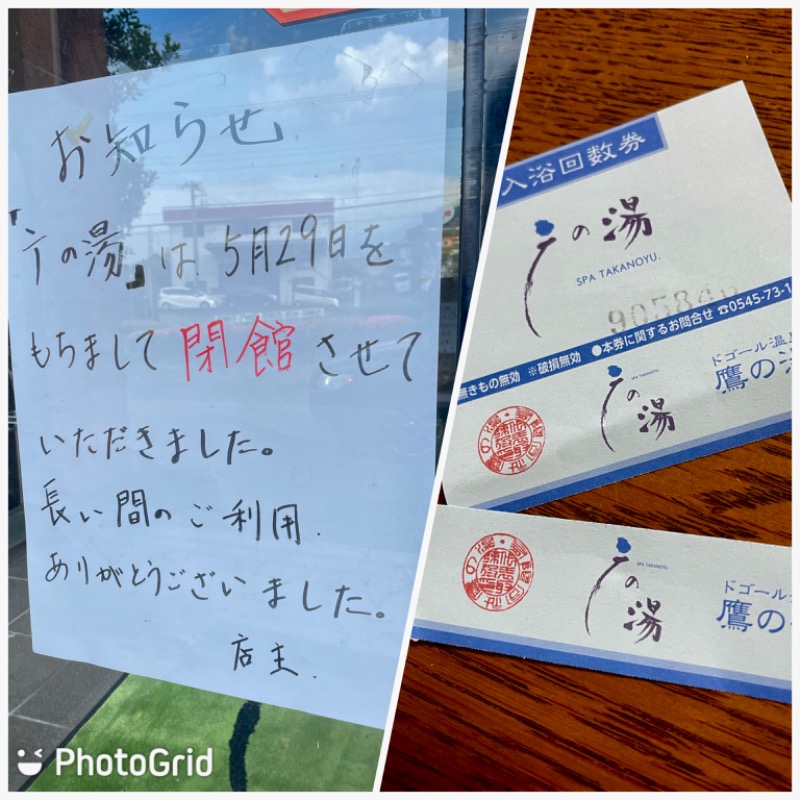 お知らせ
「亍の湯」は 5月29日を
もちまして 閉館 させて
いただきました。
長い間のご利用.
ありがとうございました。
店主.
入浴回数券
の湯
SPA TAKANOYU.
90584
無きもの無効 ※破損無効 ●本券に関するお問合せ ☎0545-73-1
の湯
SPA TAKANOYU.
ドゴール温
鷹の湯
の湯
SPA TAKANOYU.
ドゴール
鷹の
PhotoGrid